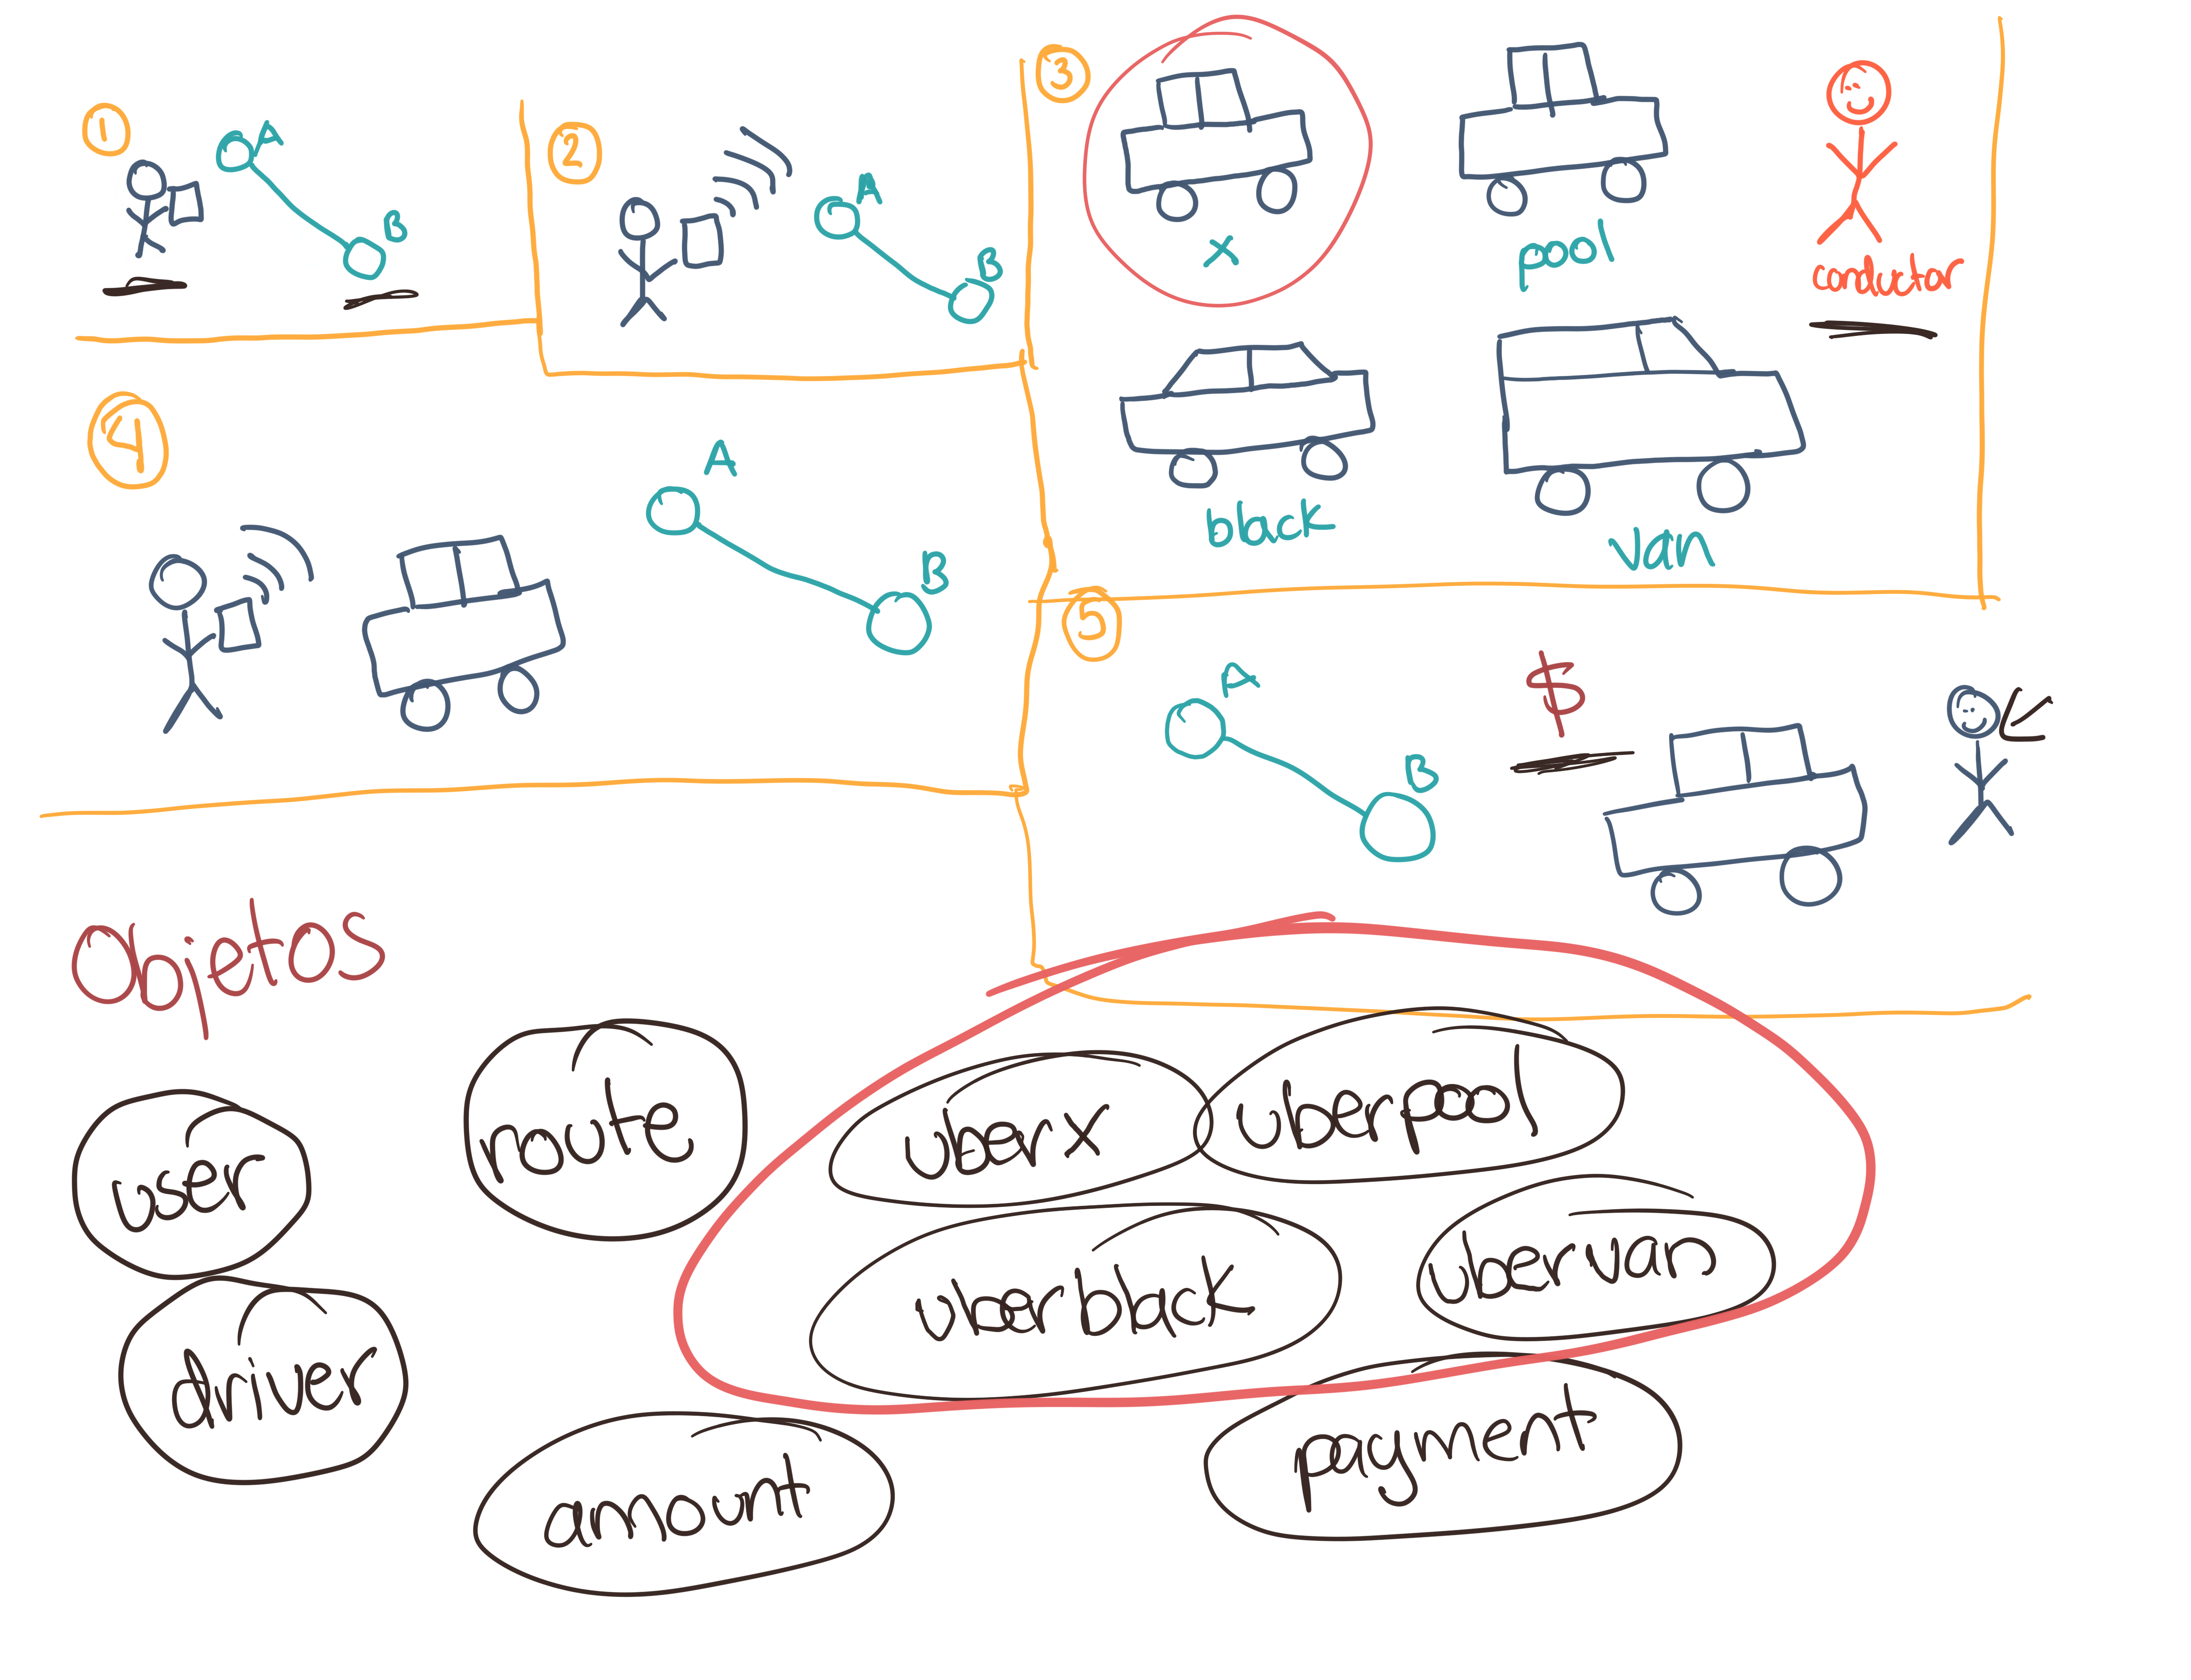 1
A
B
2
A
B
3
x
pool
conductor
black
van
4
A
B
5
A
B
$
Objetos
user
route
uber x
uberpool
uber black
ubervan
driver
amount
payment